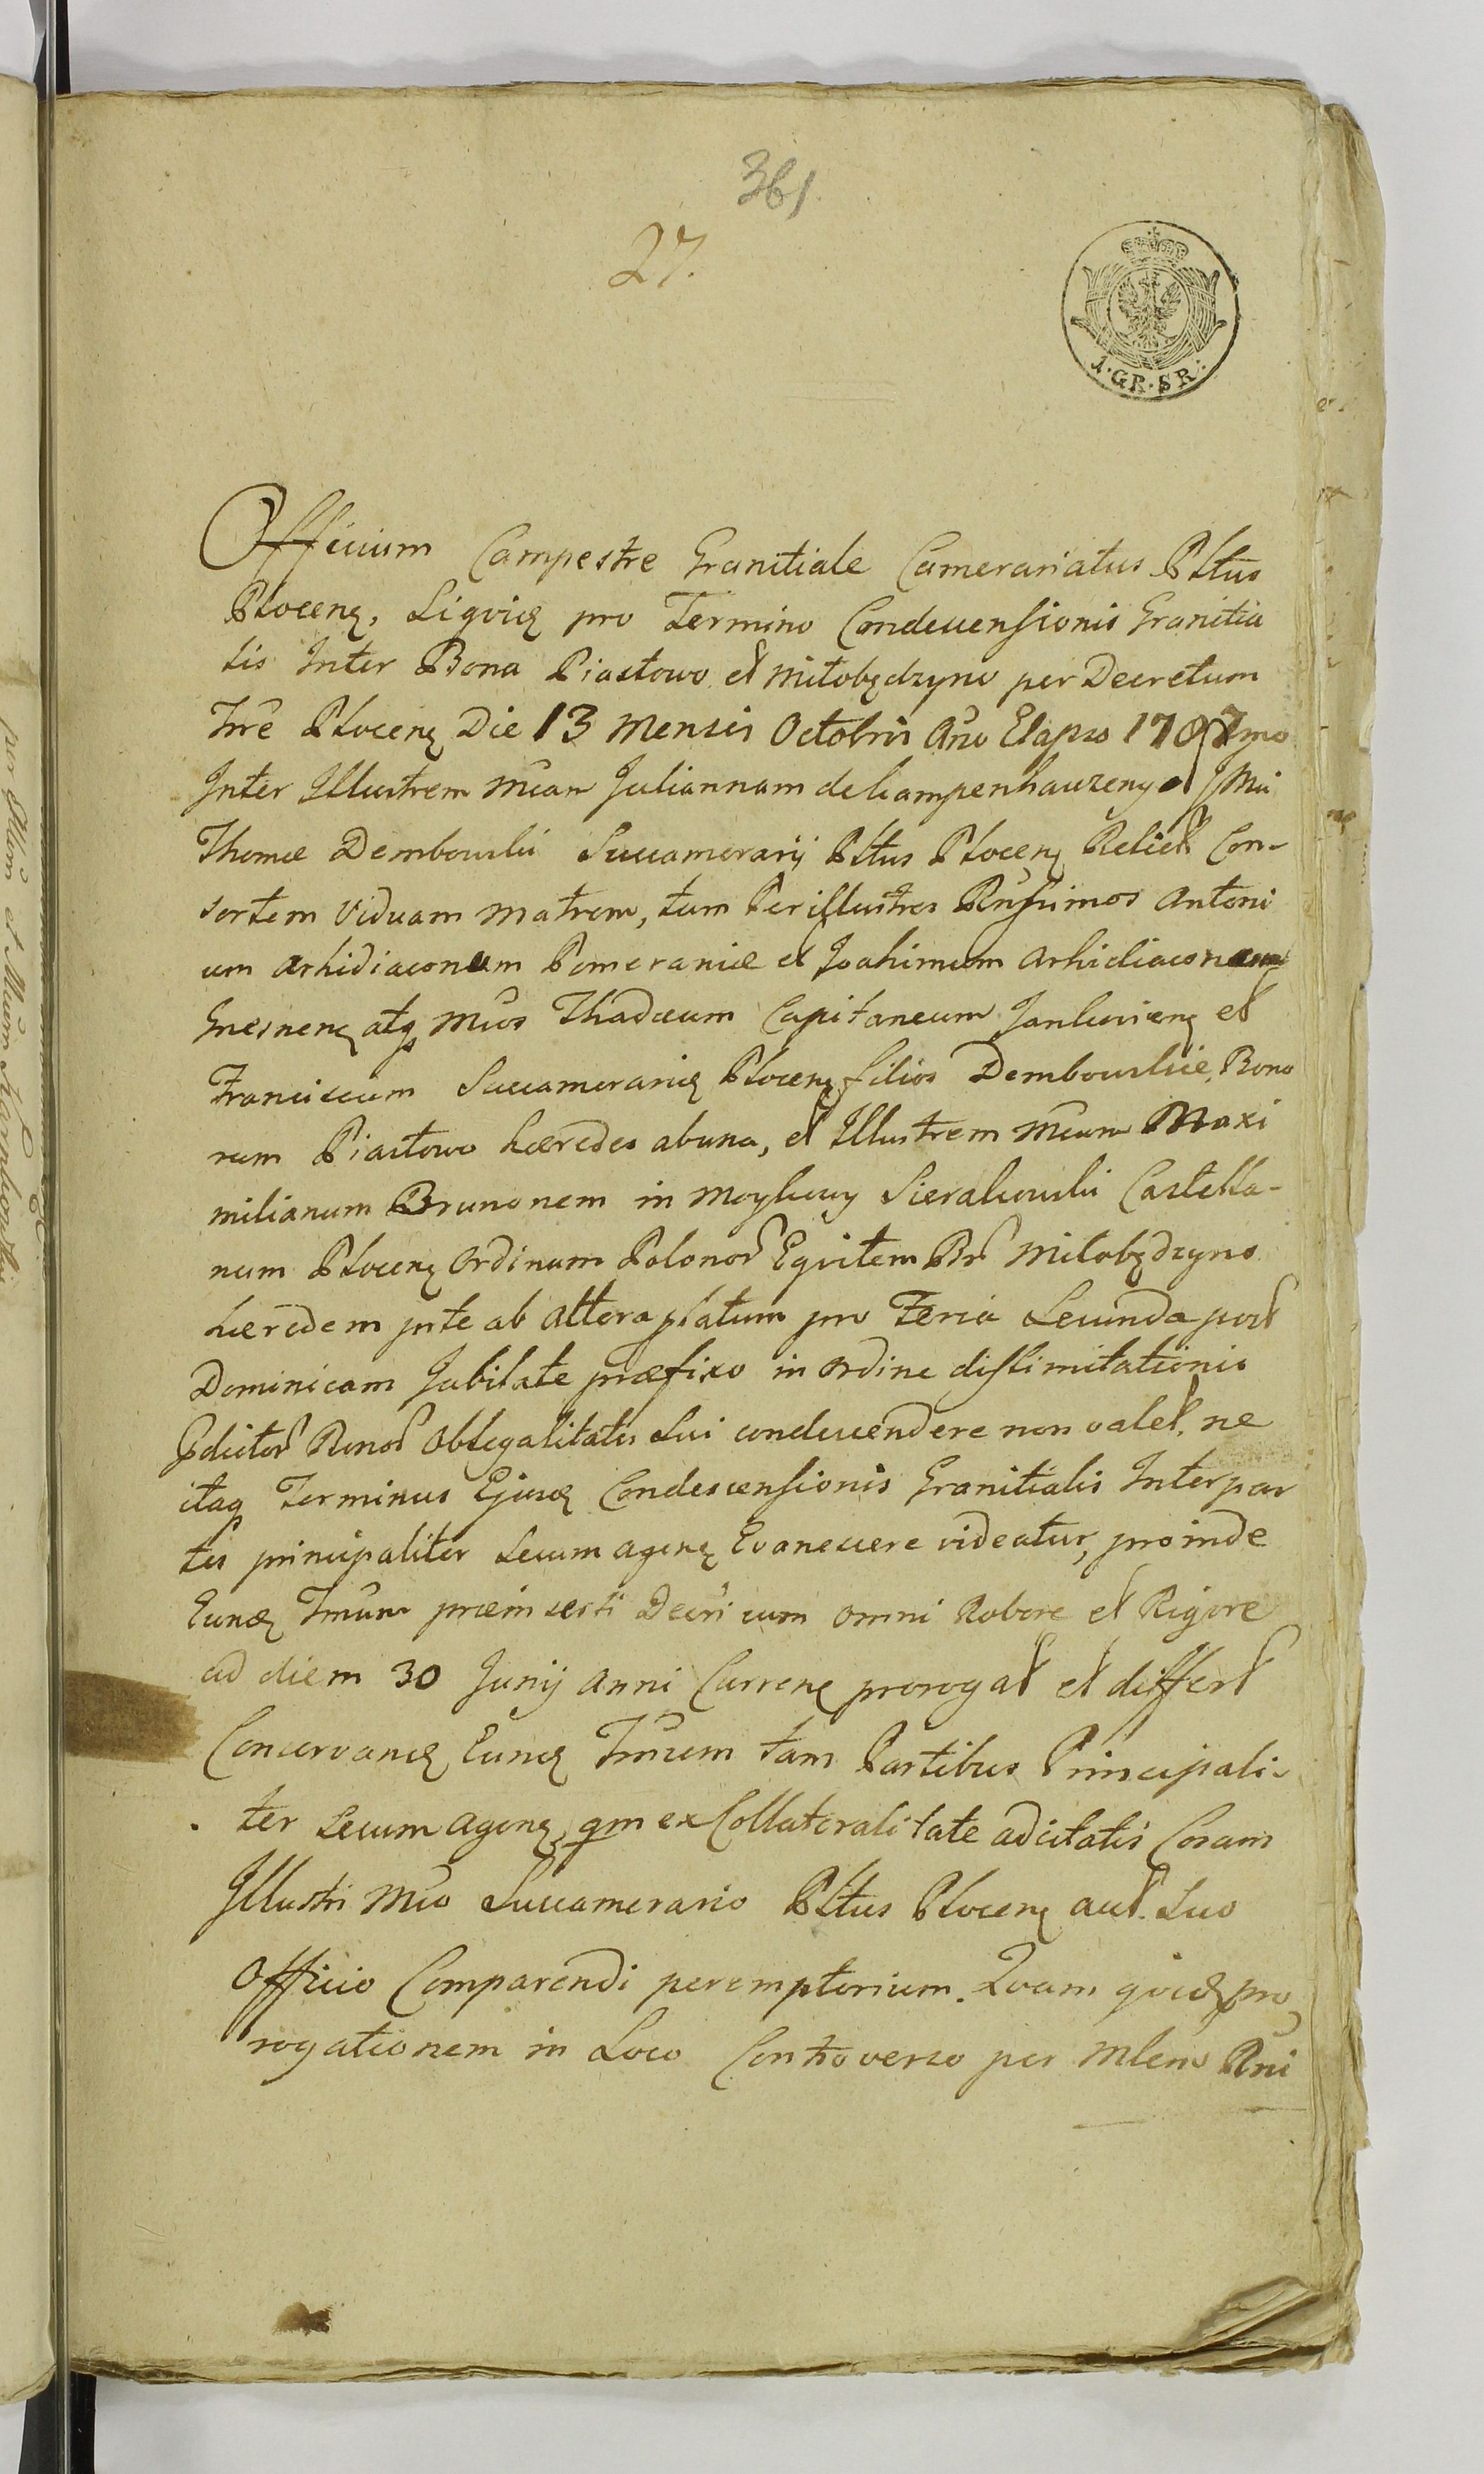 361
27.
1·GR·SR:
Officium Campestre Granitiale Camerariatus Pltus
Plocenȩ, Siqvidȩ pro Termino Condescensionis Granitia
lis Inter Bona Piastowo et Miłobędzyno per Decretum
Tr̃e Plocenȩ Die 13 Mensis Octobris Año Elapso 1787mo
Inter Illustrem Mcam Juliannam de Campenhauzeny olim Mci
Thomæ Dembowski Succamerarij Pltus Plocenȩ Relict Con-
sortem Viduam Matrem, tum Perillustres Rñssimos Antoni
um Arhidiaconum Pomeraniæ et Joahimum Arhidiaconum
Gnesnenȩ atq Mcos Thadæum Capitaneum Jankovienȩ et
Franciscum Succameraridȩ Plocenȩ filios Dembowskie, Bono
rum Piastowo hæredes ab una, et Illustrem Mcum Maxi
milianum Brunonem in Moykowy Sierakowski Castella-
num Plocenȩ Ordinum Polonor Eqvitem Br Miłobędzyno
hæredem pte ab altera platum pro Feria Secunda post
Dominicam Jubilate præfixo in Ordine dislimitationis
Pdictor Bonor Oblegalitates Sui condescendere non valet, ne
itaq Terminus Ejusdȩ Condescensionis Granitialis Inter par
tes principaliter Secum agenȩ Evanescere videatur, proinde
Eundȩ Tm̃um præinserti Decri cum omni Robore et Rigore
ad diem 30 Junij Anni Currenȩ prorogat et differt
Conservandȩ Eundȩ Tm̃um tam Partibus Principali-
ter Secum agenȩ qm ex Collateralitate adcitatis Coram
Illustri Mco Succamerario Pltus Plocenȩ aut Suo
Officio Comparendi peremptorium. Qvam qvidȩ pro
rogationem in Loco Controverso per Mlem Rni